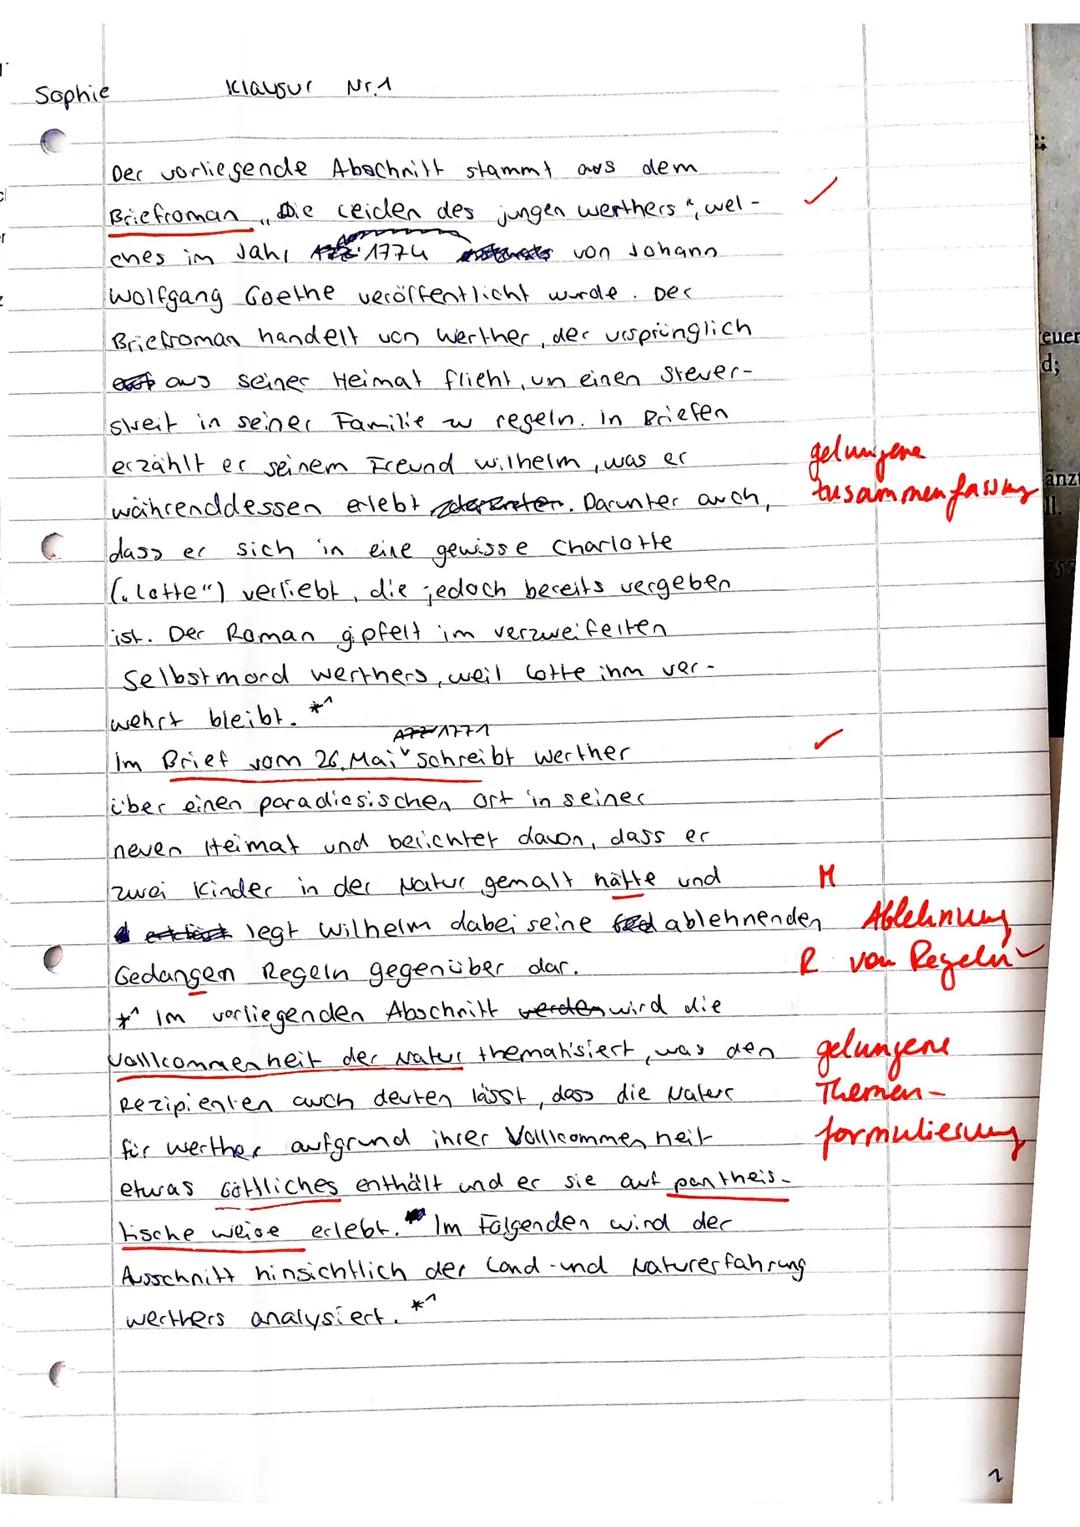 Sophie
Klausur Nr.1
Der vorliegende Abschnitt stammt aus dem
Briefroman „Die Leiden des jungen Werthers", wel-
ches im Jahr 1774 von Johann
Wolfgang Goethe veröffentlicht wurde. Der
Briefroman handelt von Werther, der ursprünglich
aus seiner Heimat flieht, un einen Steuer-
streit in seiner Familie zu regeln. In Briefen
erzählt er seinem Freund Wilhelm, was er
gelungene
währenddessen erlebt. Darunter auch,
Zusammenfassung
dass er sich in eine gewisse Charlotte
(„Lotte") verliebt, die jedoch bereits vergeben
ist. Der Roman gipfelt im verzweifelten
Selbstmord Werthers, weil Lotte ihm ver-
wehrt bleibt. *¹
1771
Im Brief vom 26. Mai schreibt Werther
über einen paradiesischen Ort in seiner
neuen Heimat und berichtet davon, dass er
zwei Kinder in der Natur gemalt hätte und
M
legt Wilhelm dabei seine ablehnenden
Ablehnung
Gedangen Regeln gegenüber dar.
R von Regeln
*¹ Im vorliegenden Abschnitt wird die
Vollkommenheit der Natur thematisiert, was den
gelungene
Rezipienten auch deuten lässt, dass die Natur
Themen-
für Werther aufgrund ihrer Vollkommenheit
formulierung
etwas Göttliches enthält und er sie auf pantheis-
tische Weise erlebt. Im Folgenden wird der
Ausschnitt hinsichtlich der Land-und Naturerfahrung
Werthers analysiert. *¹
1
euer
d;
änzt
ll.